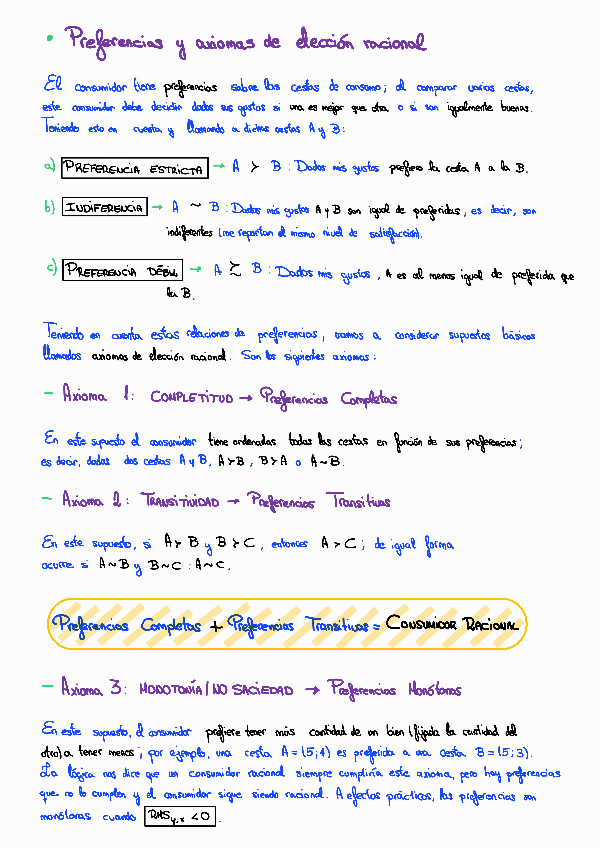 • Preferencias y axiomas de elección racional
El consumidor tiene preferencias sobre las cestas de consumo; al comparar varias cestas,
este consumidor debe decidir dados sus gustos si una es mejor que otra o si son igualmente buenas.
Teniendo esto en cuenta y llamando a dichas cestas A y B:
a) PREFERENCIA ESTRICTA → A ≻ B : Dados mis gustos prefiero la cesta A a la B.
b) INDIFERENCIA → A ~ B : Dados mis gustos A y B son igual de preferidas, es decir, son
indiferentes (me reportan el mismo nivel de satisfacción).
c) PREFERENCIA DÉBIL → A ≿ B : Dados mis gustos, A es al menos igual de preferida que
la B.
Teniendo en cuenta estas relaciones de preferencias, vamos a considerar supuestos básicos
llamados axiomas de elección racional. Son los siguientes axiomas:
- Axioma 1: COMPLETITUD → Preferencias Completas
En este supuesto el consumidor tiene ordenadas todas las cestas en función de sus preferencias;
es decir, dadas dos cestas A y B, A≻B, B≻A o A~B.
- Axioma 2: TRANSITIVIDAD → Preferencias Transitivas
En este supuesto, si A≻B y B≻C, entonces A≻C; de igual forma
ocurre si A~B y B~C : A~C.
Preferencias Completas + Preferencias Transitivas = CONSUMIDOR RACIONAL
- Axioma 3: MONOTONÍA/NO SACIEDAD → Preferencias Monótonas
En este supuesto, el consumidor prefiere tener más cantidad de un bien (fijada la cantidad del
otro) a tener menos; por ejemplo, una cesta A=(5;4) es preferida a una cesta B=(5;3).
La lógica nos dice que un consumidor racional siempre cumpliría este axioma, pero hay preferencias
que no lo cumplen y el consumidor sigue siendo racional. A efectos prácticos, las preferencias son
monótonas cuando RMS y,x < 0.